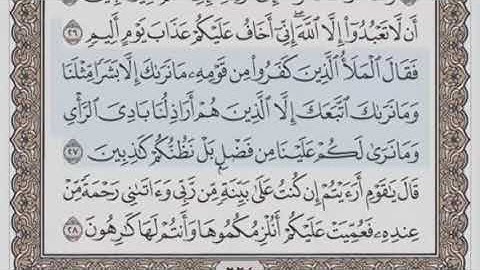 أَن لَّا تَعْبُدُوٓا۟ إِلَّا ٱللَّهَ ۖ إِنِّىٓ أَخَافُ عَلَيْكُمْ عَذَابَ يَوْمٍ أَلِيمٍ ٢٦
فَقَالَ ٱلْمَلَأُ ٱلَّذِينَ كَفَرُوا۟ مِن قَوْمِهِۦ مَا نَرَىٰكَ إِلَّا بَشَرًا مِّثْلَنَا
وَمَا نَرَىٰكَ ٱتَّبَعَكَ إِلَّا ٱلَّذِينَ هُمْ أَرَاذِلُنَا بَادِىَ ٱلرَّأْىِ
وَمَا نَرَىٰ لَكُمْ عَلَيْنَا مِن فَضْلٍۭ بَلْ نَظُنُّكُمْ كَٰذِبِينَ ٢٧
قَالَ يَٰقَوْمِ أَرَءَيْتُمْ إِن كُنتُ عَلَىٰ بَيِّنَةٍ مِّن رَّبِّى وَءَاتَىٰنِى رَحْمَةً مِّنْ
عِندِهِۦ فَعُمِّيَتْ عَلَيْكُمْ أَنُلْزِمُكُمُوهَا وَأَنتُمْ لَهَا كَٰرِهُونَ ٢٨